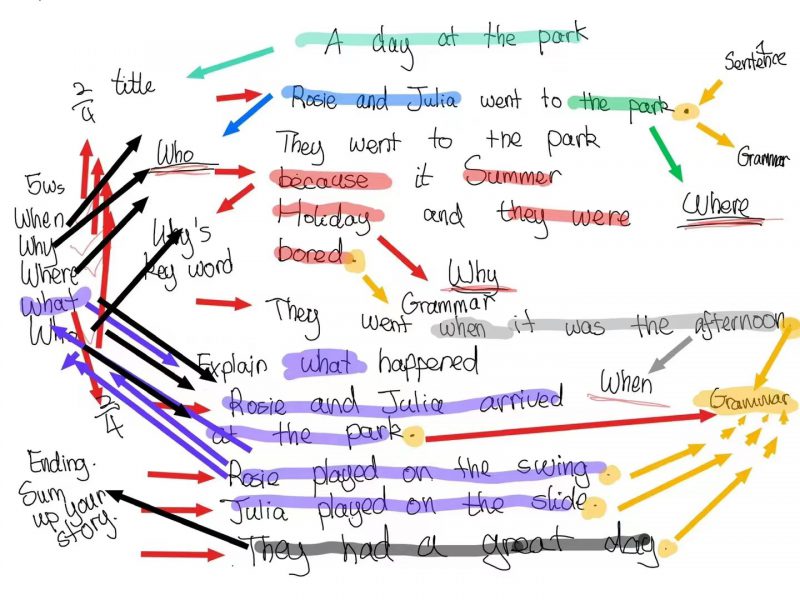 A day at the park
title
2/4
Sentence 1
Rosie and Julia went to the park.
Grammar
They went to the park
Who
because it Summer
Where
Holiday and they were
bored.
Why
Grammar
5Ws
When
Why
Where
What
Who
Why's
key word
They went when it was the afternoon
Explain what happened
When
Grammar
2/4
Rosie and Julia arrived
at the park.
Ending.
Sum
up your
story.
Rosie played on the swing.
Julia played on the slide.
They had a great day.